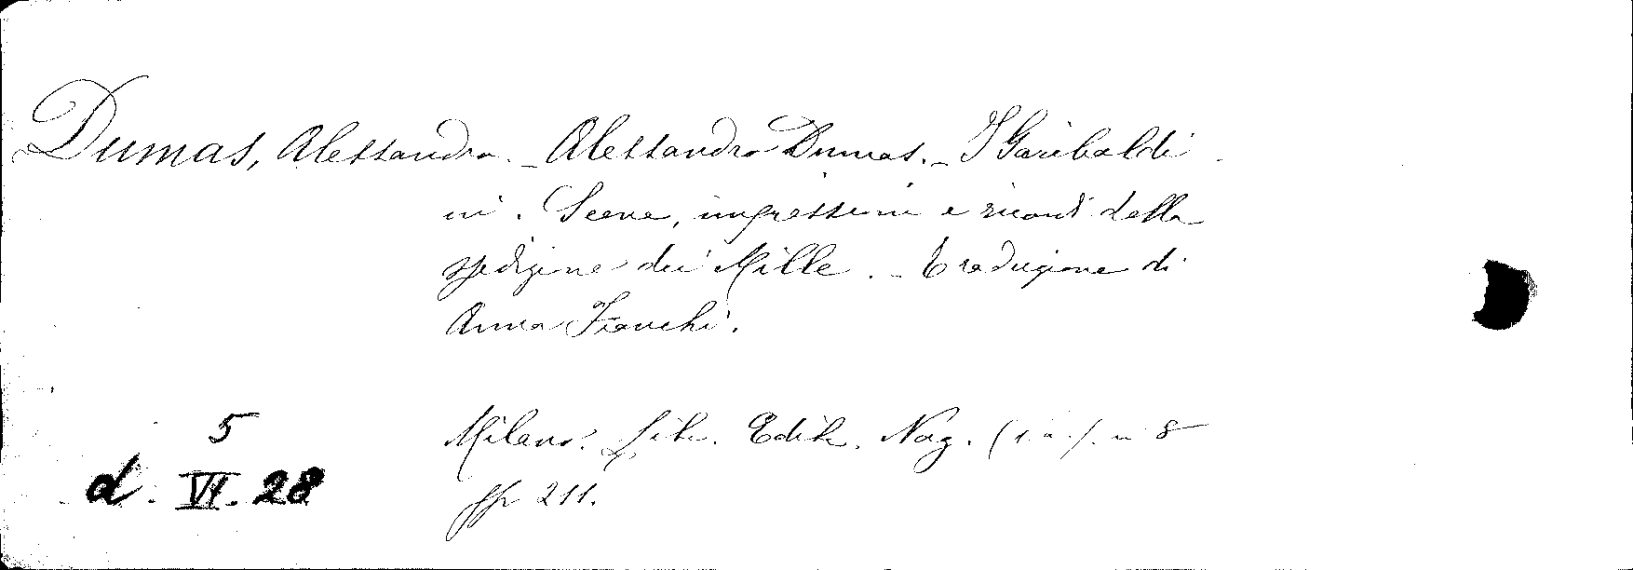 Dumas, Alessandro. - Alessandro Dumas. - I Garibaldi
ni. Scene, impressioni e ricordi della
spedizione dei Mille. - Traduzione di
Anna Franchi.
5 Milano. Libr. Edit. Naz. (s. a.). in 8
d. VI. 28
pp 211.